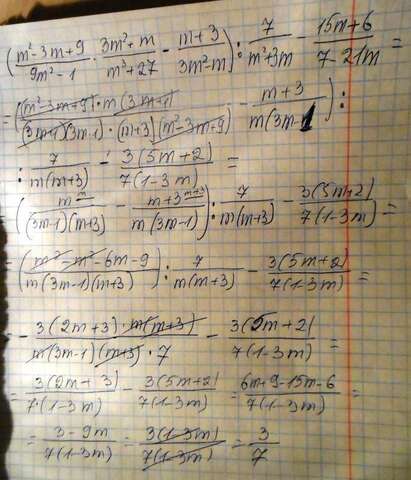 (m²-3m+9/9m²-1 · 3m²+m/m³+27 - m+3/3m²-m) : 7/m²+3m - 15m+6/7-21m =
= ((m²-3m+9)·m(3m+1)/(3m+1)(3m-1)·(m+3)(m²-3m+9) - m+3/m(3m-1)) :
: 7/m(m+3) - 3(5m+2)/7(1-3m) =
(m^m/(3m-1)(m+3) - m+3^m+3/m(3m-1)) : 7/m(m+3) - 3(5m+2)/7(1-3m) =
= (m²-m²-6m-9/m(3m-1)(m+3)) : 7/m(m+3) - 3(5m+2)/7(1-3m) =
- 3(2m+3)·m(m+3)/m(3m-1)(m+3)·7 - 3(5m+2)/7(1-3m) =
= 3(2m+3)/7·(1-3m) - 3(5m+2)/7(1-3m) = 6m+9-15m-6/7(1-3m) =
= 3-9m/7(1-3m) = 3(1-3m)/7(1-3m) = 3/7